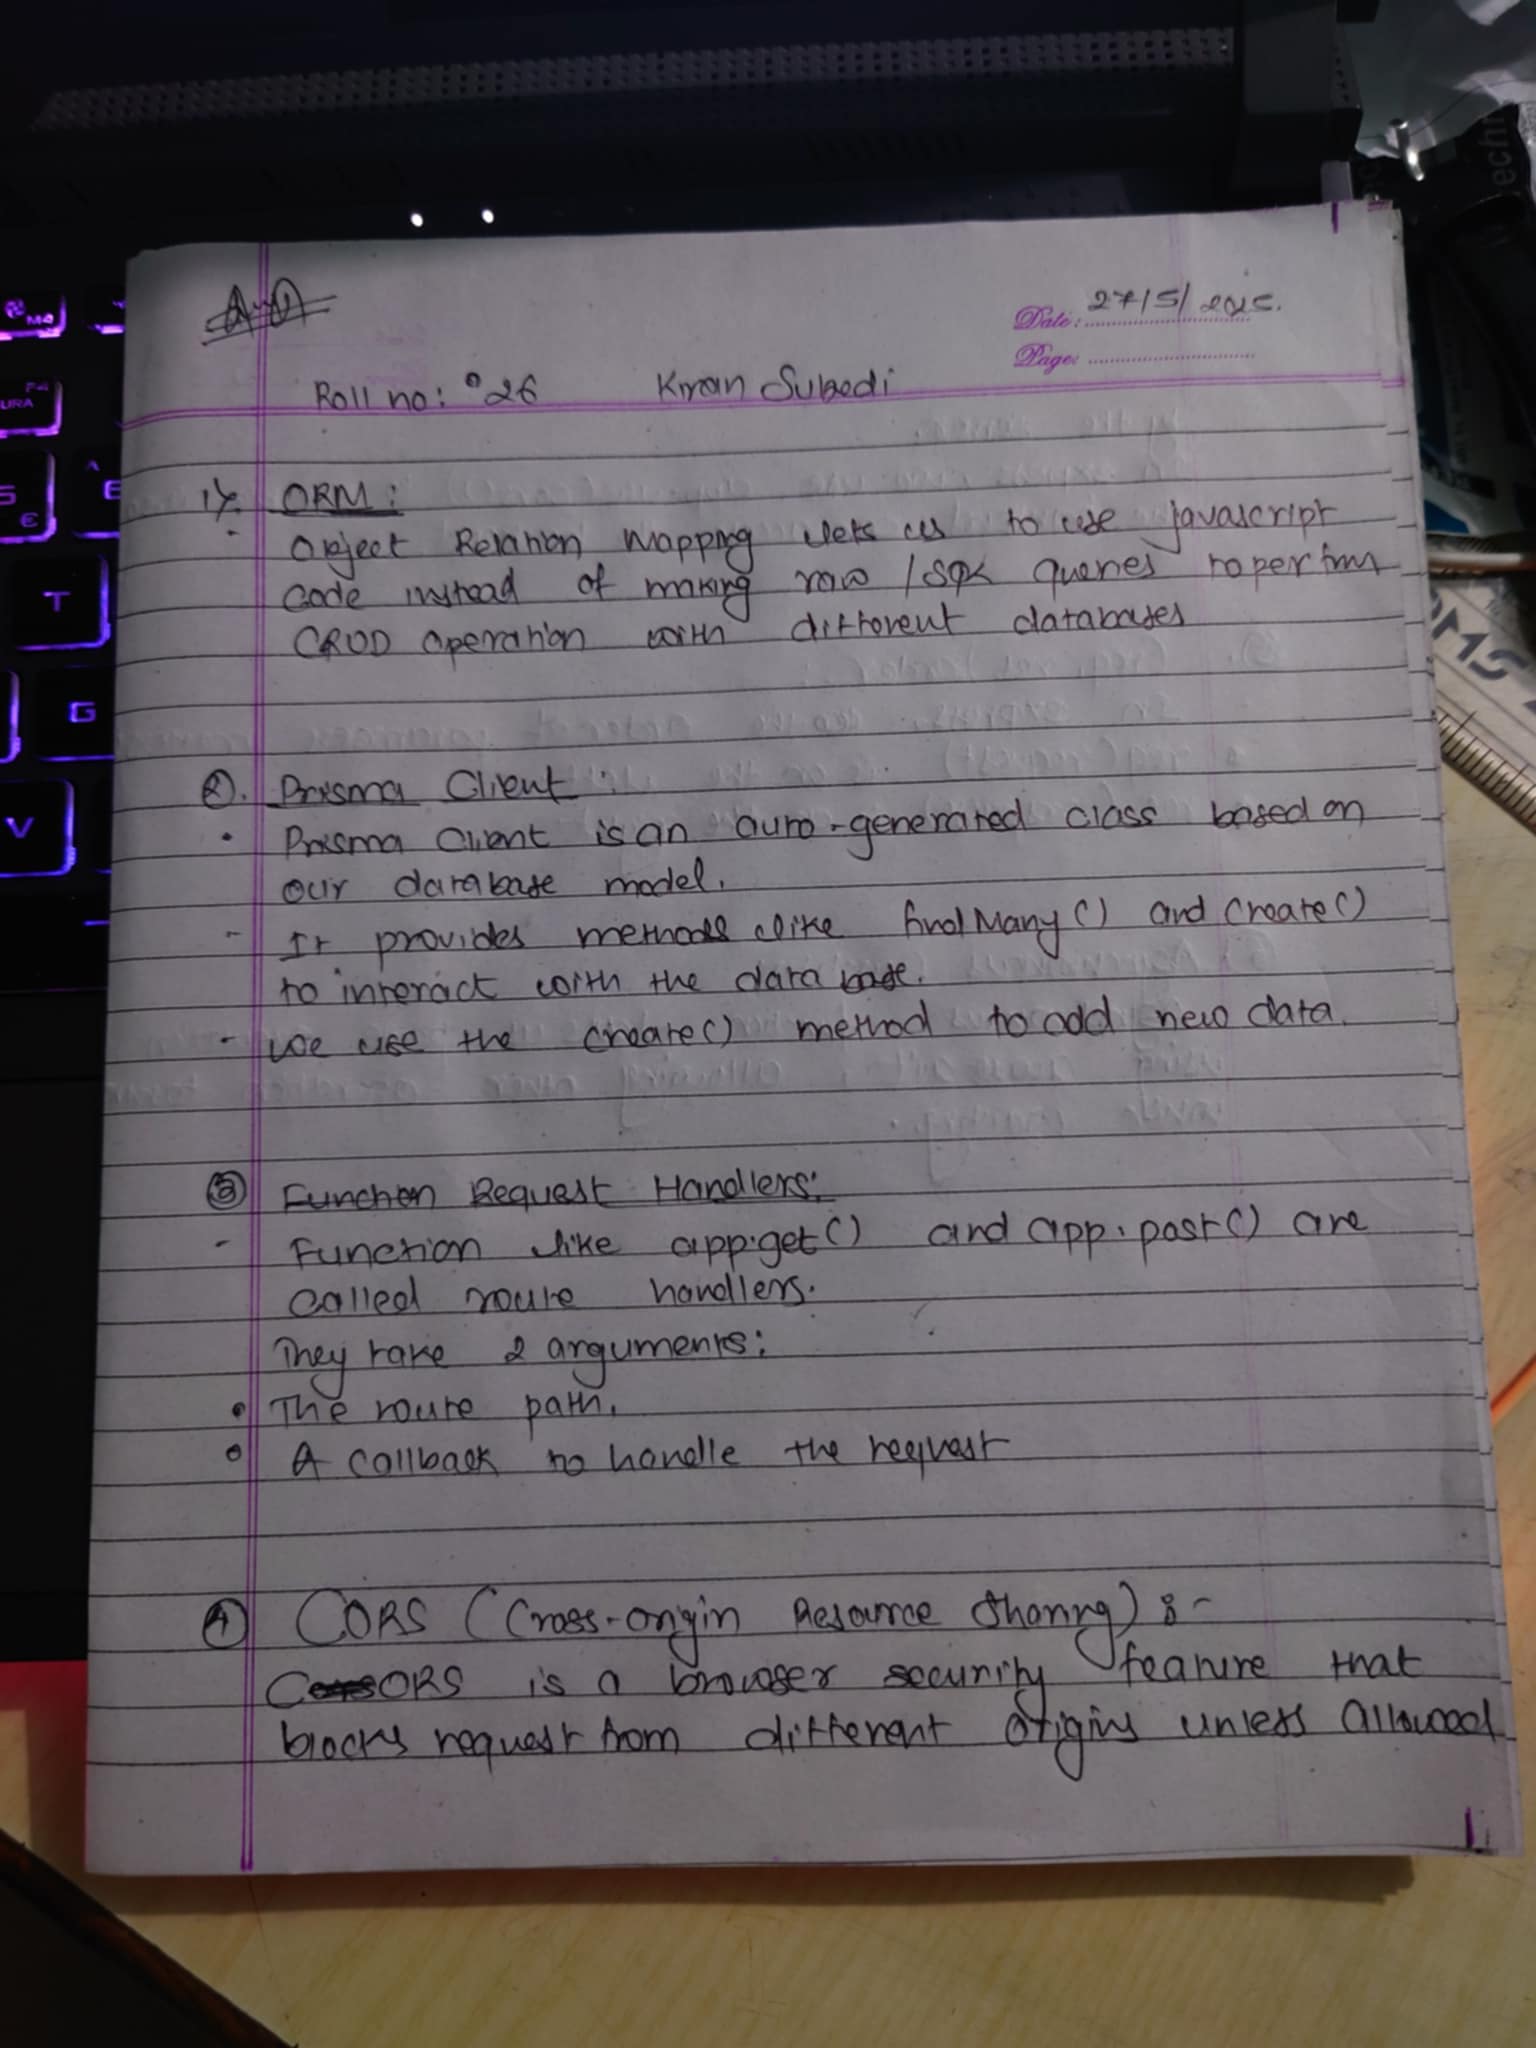 Date: 27/5/2025.
Page:
Roll no: 26 Kiran Subedi
1). ORM:
- Object Relation Mapping lets us to use javascript
code instead of making raw /SQL queries to perform
CRUD operation with different databases
2). Prisma Client:
• Prisma Client is an auto-generated class based on
our database model.
- It provides methods like findMany() and create()
to interact with the data base.
- we use the create() method to add new data.
3) Function Request Handlers:
- Function like app.get() and app.post() are
called route handlers.
They take 2 arguments:
• The route path.
• A callback to handle the request
4) CORS (Cross-origin Resource Sharing) :-
CORS is a browser security feature that
blocks request from different origins unless allowed
T
G
V